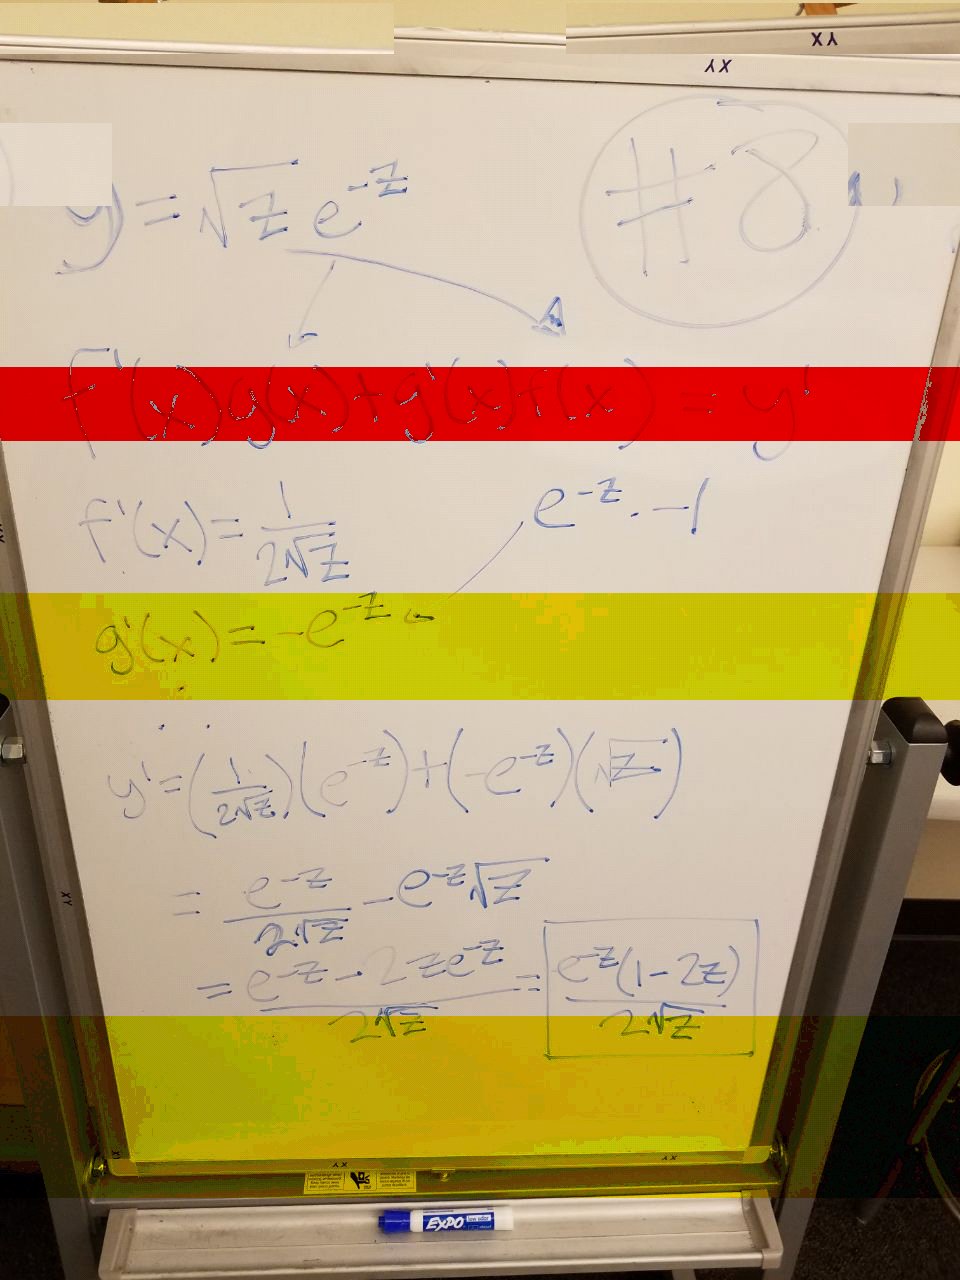 XY
XY
#8
y = √z e^-z
f'(x)g(x)+g'(x)f(x) = y'
f'(x) = 1/(2√z)
e^-z · -1
g'(x) = -e^-z
y' = (1/(2√z))(e^-z)+(-e^-z)(√z)
= e^-z/(2√z) - e^-z√z
= (e^-z - 2ze^-z)/(2√z) = e^-z(1-2z)/(2√z)
EXPO low odor